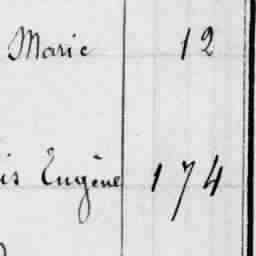 Marie 12
is Eugène 174